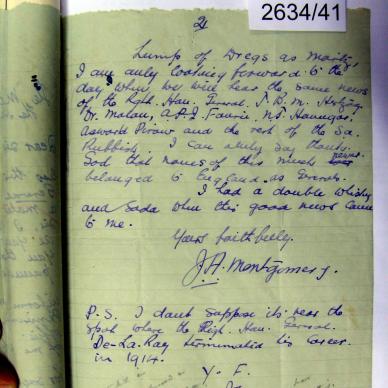 2634/41
2
Lump of Dregs as
I am only looking forward to the
day when we will hear the same news
of the Rght. Hon. General. J. B. M. Hertzog
Dr. Malan, A.P.J. Fourie, Mr Havenga.
Oswald Pirow and the rest of the Sa.
Rubbish. I can only say thank
God that none of this
never
belonged to England as
I had a double whisky
and Soda when this good news came
to me.
Yours faithfully.
J.A. Montgomery.
P.S. I dont suppose its near the
spot where the Righ. Hon. General.
De-La-Ray terminated his career.
in 1914.
Y. F.